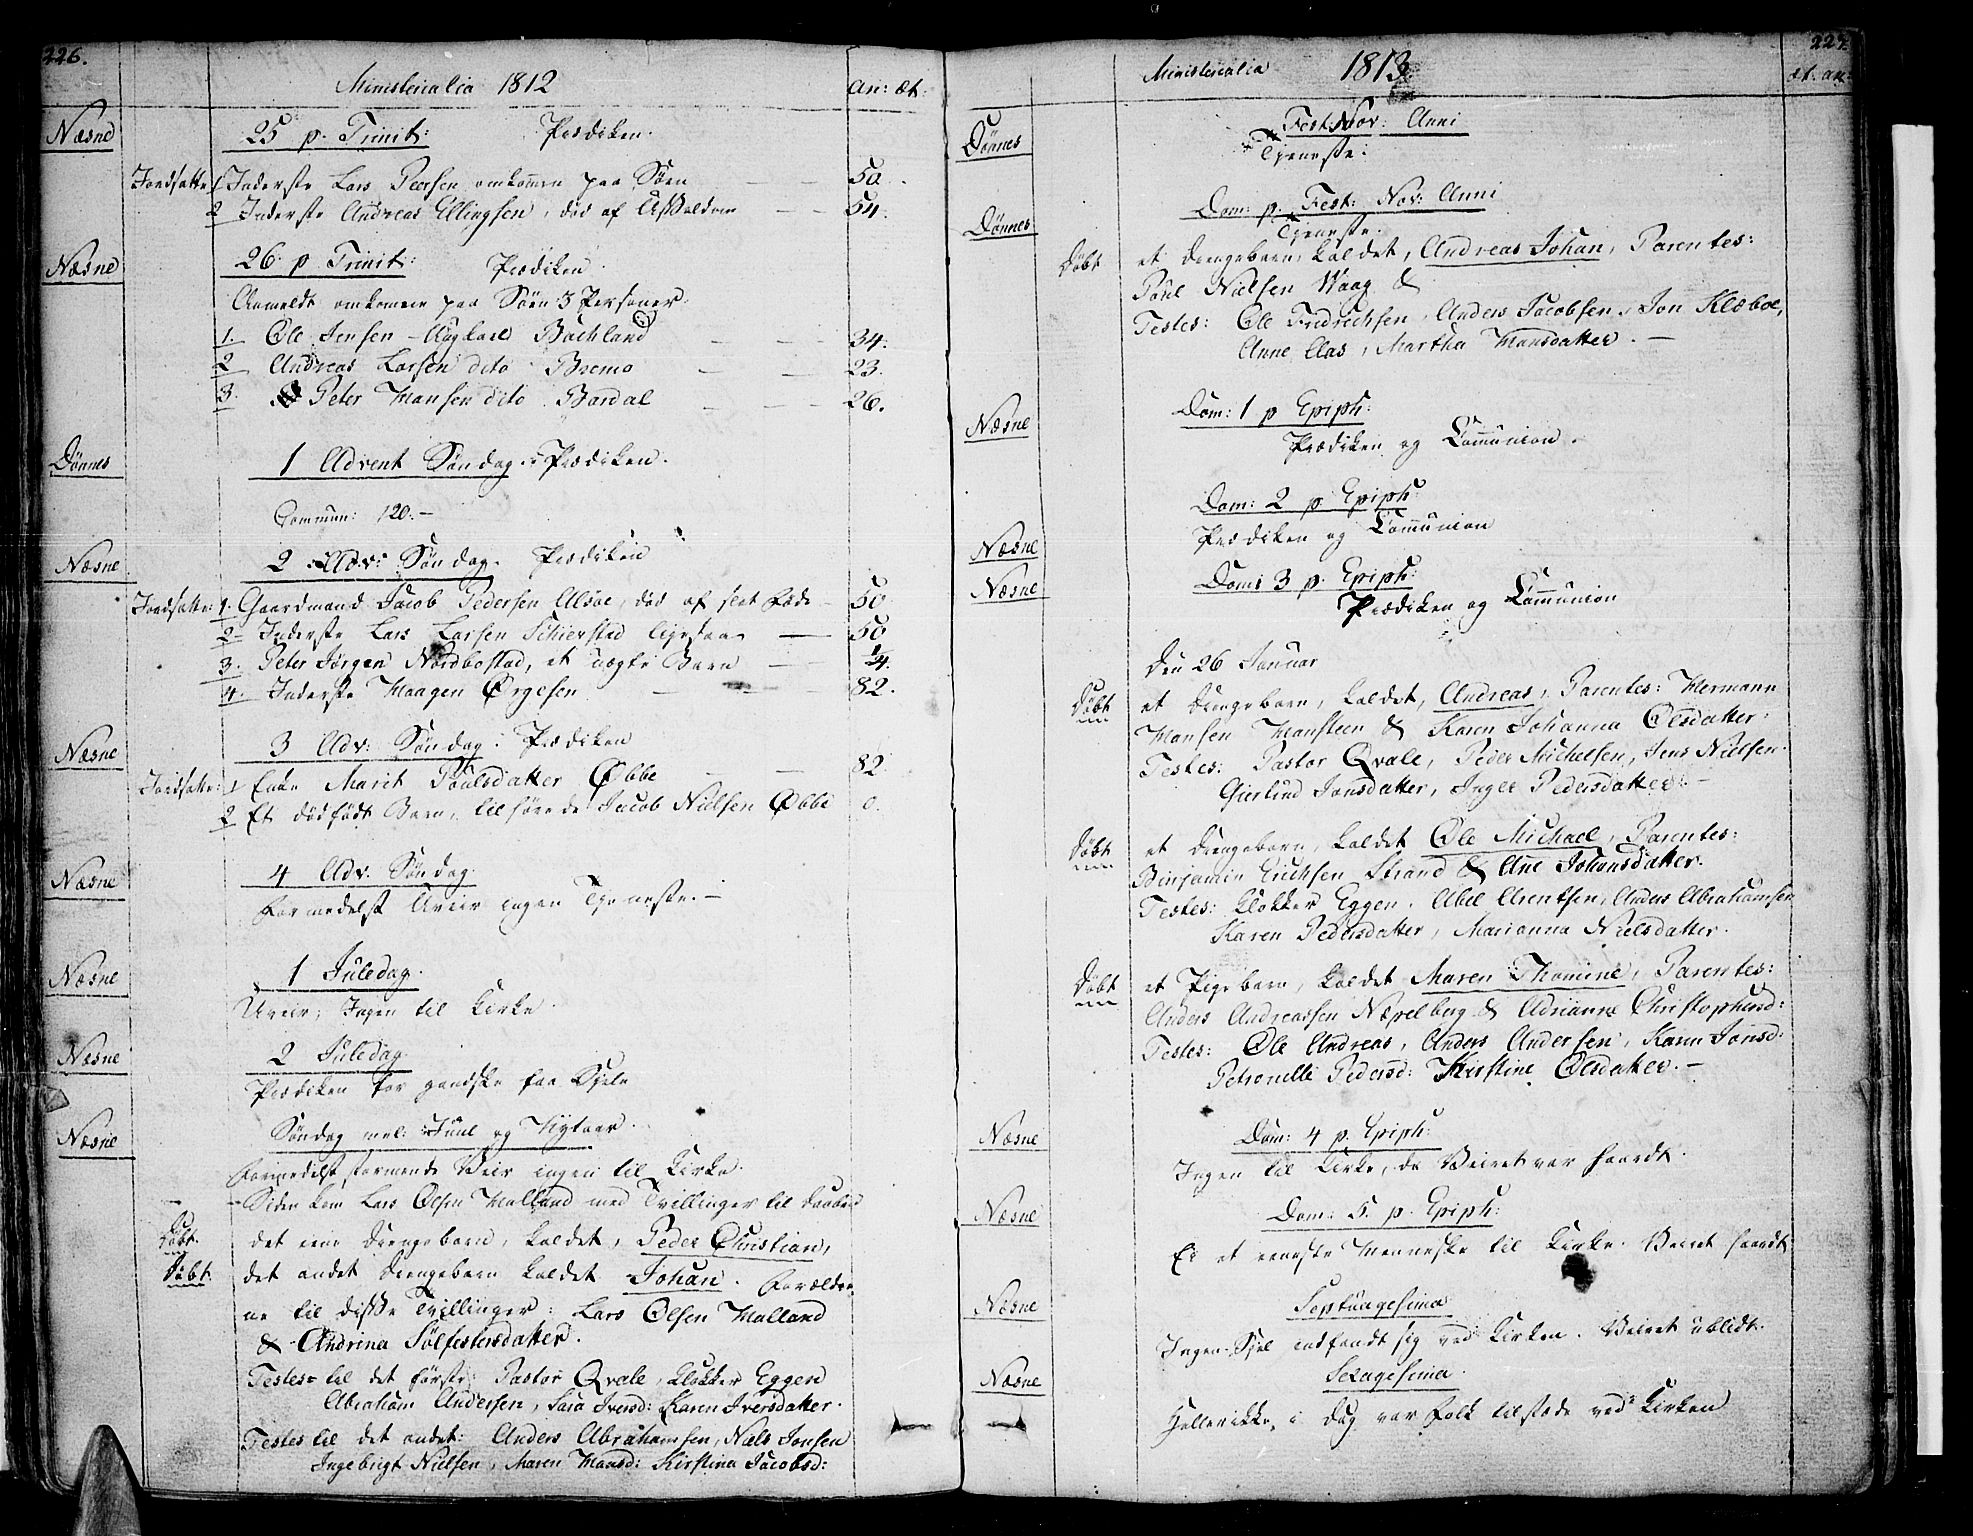 226.
Ministerialia 1812
an: æt:
Næsne
25 p. Trinit: Prædiken.
Jordfatte: 1 Inderste Lars Peersen omkommen paa Søen — 50.
2 Inderste Andreas Ellingsen, død af Alderdom — 54.
Næsne
26 p Trinit: Prædiken.
Anmeldt omkomne paa Søen 3 Personer:
1. Ole Jensen Bachland — 34.
2 Andreas Larsen dito Bremo — 23.
3. Peter Hansen dito Bardal — 26.
Dønnes
1 Advent Søndag. Prædiken.
Commun: 120.—
Næsne
2 Adv: Søndag. Prædiken
Jordfatte: 1. Gaardmand Jacob Pedersen Alsøe, død af — 50
2 Inderste Lars Larsen ligesaa — 50
3. Peter Jørgen Nordbostad, et uægte Barn — 1/4.
4. Inderste Haagen Ørgesen — 82.
Næsne
3 Adv: Søndag. Prædiken
Jordfatte: 1 Enke Marit Poulsdatter Øbbe — 82
2 Et dødfødt Barn, tilhørende Jacob Nielsen Øbbe 0.
Næsne
4 Adv. Søndag.
Formedelst Uveir ingen Tjeneste.—
Næsne
1 Juledag.
Uveir; Ingen til Kirke.
Næsne
2 Juledag.
Prædiken for gandske faa Sjele
Næsne
Søndag mel: Juul og Nytaar.
Formedelst stormende Veir ingen til Kirke.
Siden kom Lars Olsen Halland med Tvillinger til Daaben
Døbt. det ene Drengebarn, kaldet, Peder Christian,
Døbt. det andet Drengebarn kaldet Johan. Forældre-
ne til disse Tvillinger: Lars Olsen Halland
& Andrina Sølfestersdatter.
Testes til det første: Pastor Qvale, Klokker Eggen
Abraham Andersen, Sara Iversd: Karen Iversdatter.
Testes til det andet: Anders Abrahamsen, Niels Jonsen
Ingebrigt Nielsen, Maren Hansd: Kirstina Jacobsd:
Ministerialia 1813
227.
æt. an:
Dønnes
Fest: Nov: Anni
Tjeneste.
Dønnes
Dom: p. Fest: Nov: Anni
Tjeneste.
Døbt et Drengebarn, kaldet, Andreas Johan, Parentes:
Poul Nielsen Waag &
Testes: Ole Fridrichsen, Anders Jacobsen, Jon Klæboe,
Anne Aas, Martha Hansdatter. —
Næsne
Dom: 1 p Epiph:
Prædiken og Communion.
Næsne
Dom: 2 p Epiph:
Prædiken og Communion
Næsne
Dom: 3 p. Epiph:
Prædiken og Communion
Den 26 Januar
Døbt et Drengebarn, kaldet, Andreas, Parentes: Hermann
Hansen Hansteen & Karen Johanna Olsdatter.
Testes: Pastor Qvale, Peder Michelsen, Jens Nielsen.
Gierlud Jonsdatter, Inger Pedersdatter. —
Døbt et Drengebarn, kaldet Ole Michael, Parentes:
Benjamin Erichsen Strand & Ane Johansdatter.
Testes: Klokker Eggen. Abel Arentsen, Anders Abrahamsen
Karen Pedersdatter, Marianna Nielsdatter.
Døbt et Pigebarn, kaldet Maren Thomine, Parentes:
Anders Andreassen Næpelberg & Adrianne Christophersd:
Testes: Ole Andreas, Anders Andersen, Karen Jonsd:
Petronelle Pedersd: Kirstine Olsdatter. —
Næsne
Dom: 4 p. Epiph:
Ingen til Kirke, da Veiret var haardt.
Næsne
Dom: 5. p. Epiph:
Ei et eeneste Menneske til Kirke. Veiret haardt
Næsne
Septuagesima
Ingen Sjel indfandt sig ved Kirken. Veiret ublidt.
Næsne
Sexagesima.
Heller ikke i Dag var Folk tilstede ved Kirken